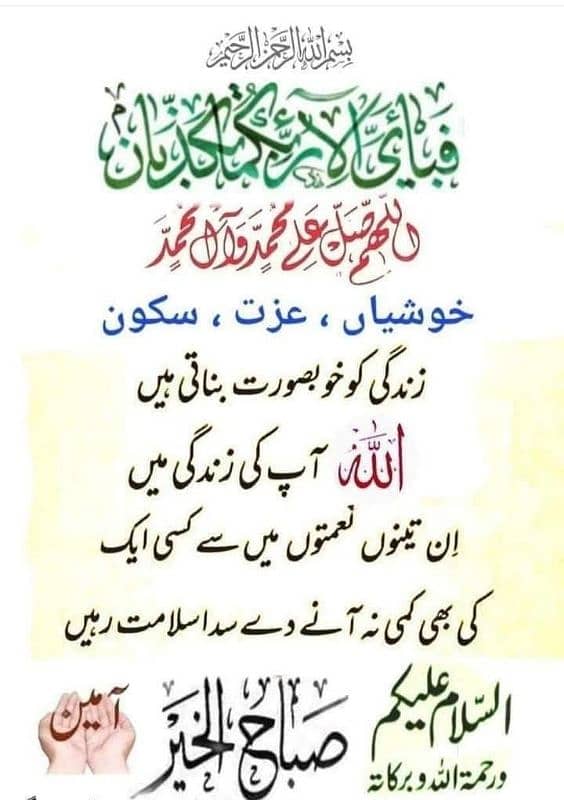 بسم الله الرحمن الرحيم
فَبِأَيِّ آلَاءِ رَبِّكُمَا تُكَذِّبَانِ
اللّٰھم صَلِّ عَلٰی مُحمدٍ وَآلِ مُحمدٍ
خوشیاں ، عزت ، سکون
زندگی کو خوبصورت بناتی ہیں
اللہ آپ کی زندگی میں
اِن تینوں نعمتوں میں سے کسی ایک
کی بھی کمی نہ آنے دے سدا سلامت رہیں
السّلام علیکم
ورحمة اللہ وبرکاتہ
صباح الخیر
آمین